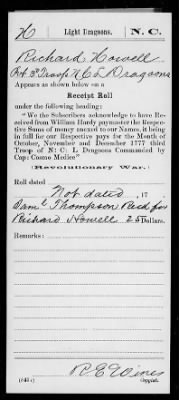 H | Light Dragoons. | N. C.
Richard Howell
Pvt 3d Troop N C L Dragoons
Appears as shown below on a
Receipt Roll
under the following heading:
"We the Subscribers acknowledge to have Received from William Hardy paymaster the Respective Sums of money annexed to our Names, it being in full for our Respective pays for the Month of October, November and December 1777 third Troop of N: C: L Dragoons Commanded by Cap: Cosmo Medice"
(Revolutionary War.)
Roll dated
Not dated, 17
Saml Thompson Recd for
Richard Howell 25 Dollars.
Remarks:
R E Wines
Copyist.